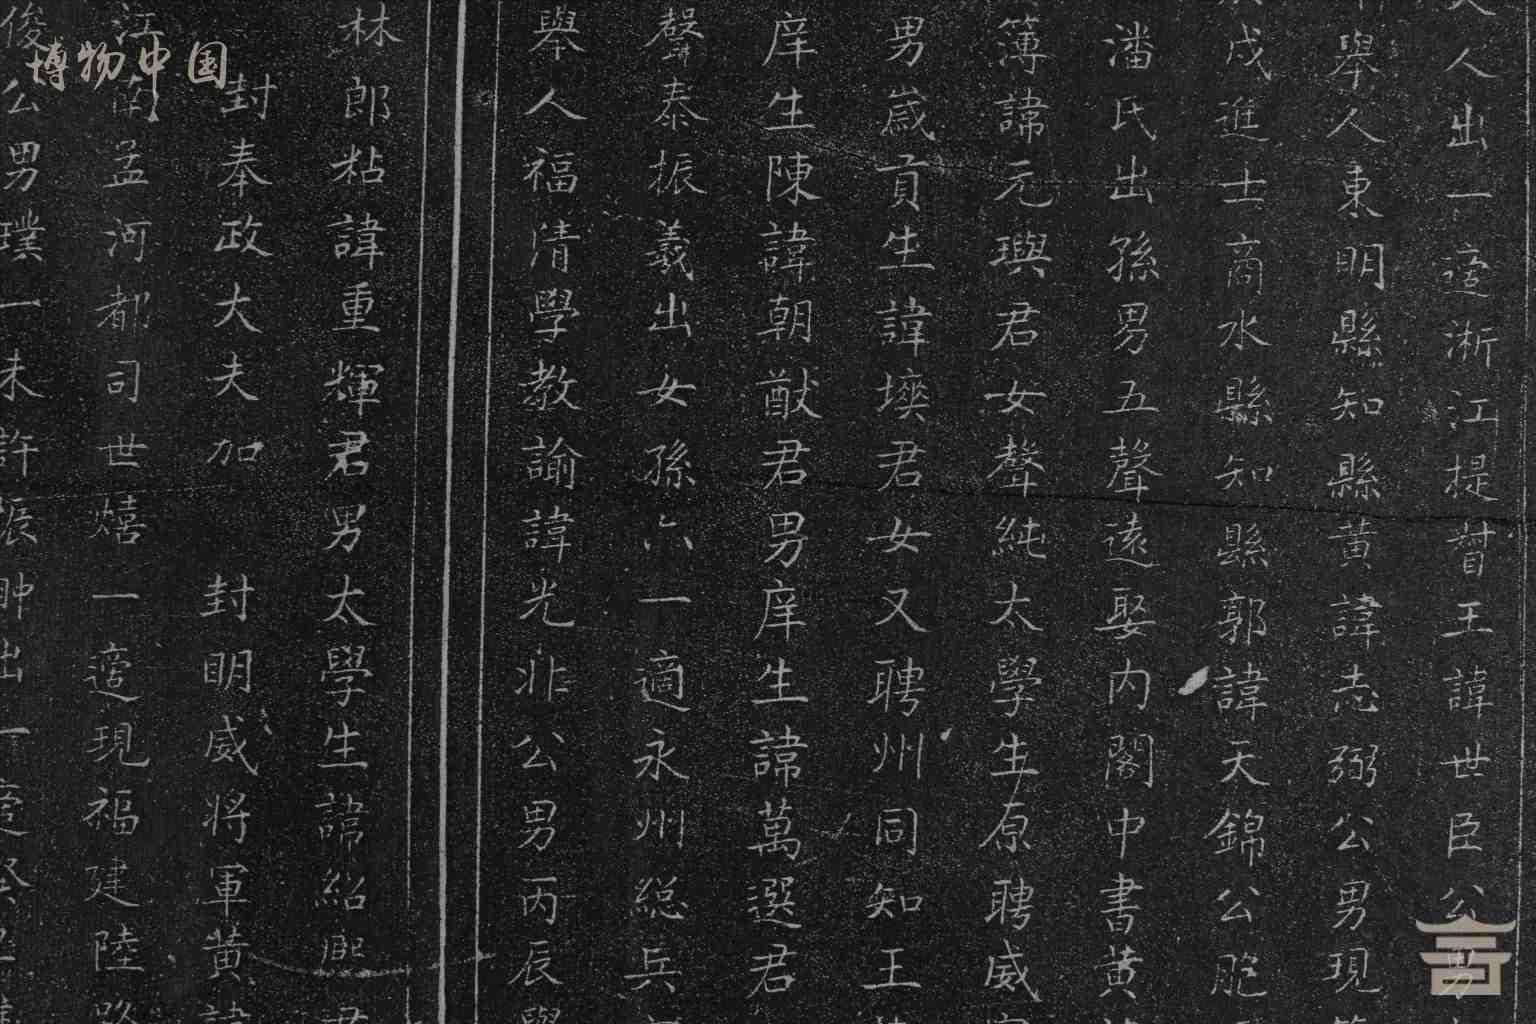 人出一適淅江提督王諱世臣公男
舉人東明縣知縣黃諱志弼公男現
戌進士商水縣知縣郭諱天錦公胞
潘氏出孫男五聲遠娶内閣中書黄
簿諱元璵君女聲純太學生原聘威
男歲貢生諱墺君女又聘州同知王
庠生陳諱朝猷君男庠生諱萬選君
聲泰振羲出女孫六一適永州総兵
舉人福清學教諭諱光非公男丙辰
林郎粘諱重輝君男太學生諱紹
封奉政大夫加 封明威将軍黄
江南孟河都司世熺一適現福建陸路
俊公男璞一未許振翀出一
博物中国